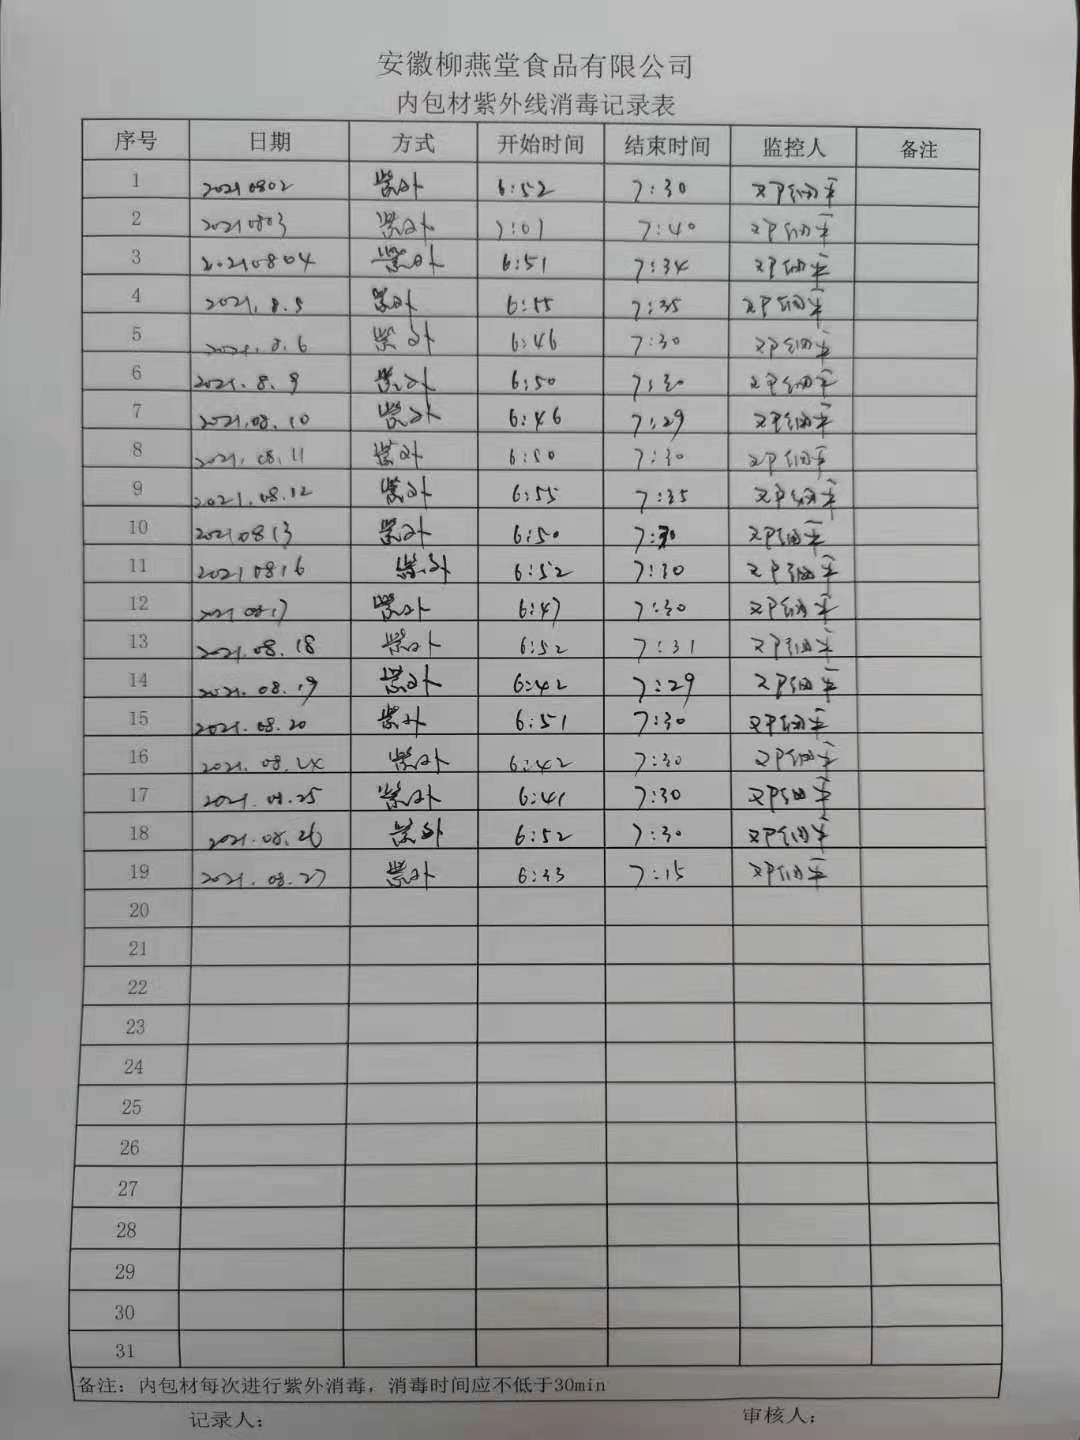 安徽柳燕堂食品有限公司
内包材紫外线消毒记录表
序号 日期 方式 开始时间 结束时间 监控人 备注
1 20210802 紫外 6:52 7:30 邓细平
2 20210803 紫外 7:01 7:40 邓细平
3 20210804 紫外 6:51 7:34 邓细平
4 2021.8.5 紫外 6:55 7:35 邓细平
5 2021.8.6 紫外 6:46 7:30 邓细平
6 2021.8.9 紫外 6:50 7:30 邓细平
7 2021.08.10 紫外 6:46 7:29 邓细平
8 2021.08.11 紫外 6:50 7:30 邓细平
9 2021.08.12 紫外 6:55 7:35 邓细平
10 20210813 紫外 6:50 7:30 邓细平
11 20210816 紫外 6:52 7:30 邓细平
12 20210817 紫外 6:47 7:30 邓细平
13 2021.08.18 紫外 6:52 7:31 邓细平
14 2021.08.19 紫外 6:42 7:29 邓细平
15 2021.08.20 紫外 6:51 7:30 邓细平
16 2021.08.24 紫外 6:42 7:30 邓细平
17 2021.08.25 紫外 6:41 7:30 邓细平
18 2021.08.26 紫外 6:52 7:30 邓细平
19 2021.08.27 紫外 6:33 7:15 邓细平
20
21
22
23
24
25
26
27
28
29
30
31
备注：内包材每次进行紫外消毒，消毒时间应不低于30min
记录人： 审核人：